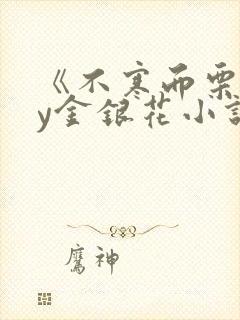 《不寒而栗
y金银花小说
鹰神